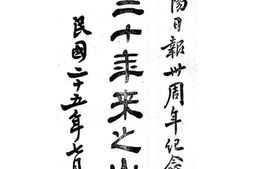 陽日報卅周年紀念
三十年來之山
民國二十五年七月